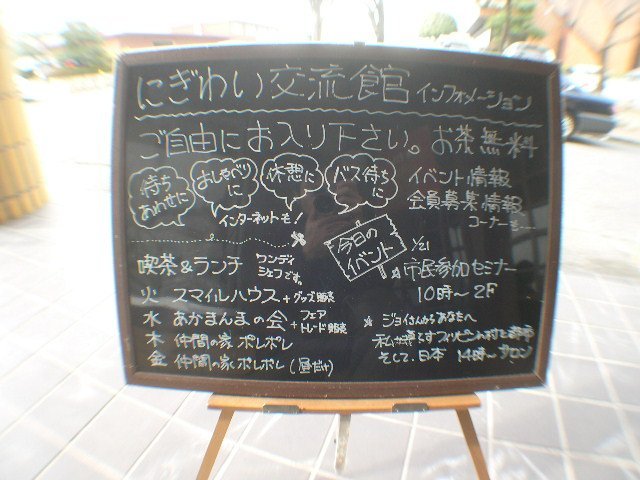 にぎわい交流館 インフォメーション
ご自由にお入り下さい。お茶無料
待ちあわせに
おしゃべりに
休憩に
バス待ちに
インターネットも!
イベント情報
会員募集情報
コーナーも…
今日のイベント
1/21
市民参加セミナー
10時〜2F
喫茶&ランチ ワンディシェフです。
火 スマイルハウス+グッズ販売
水 あかまんまの会+フェアトレード販売
木 仲間の家 ポレポレ
金 仲間の家 ポレポレ(昼だけ)
ジョイさんからあなたへ
そして、日本 14時〜サロン